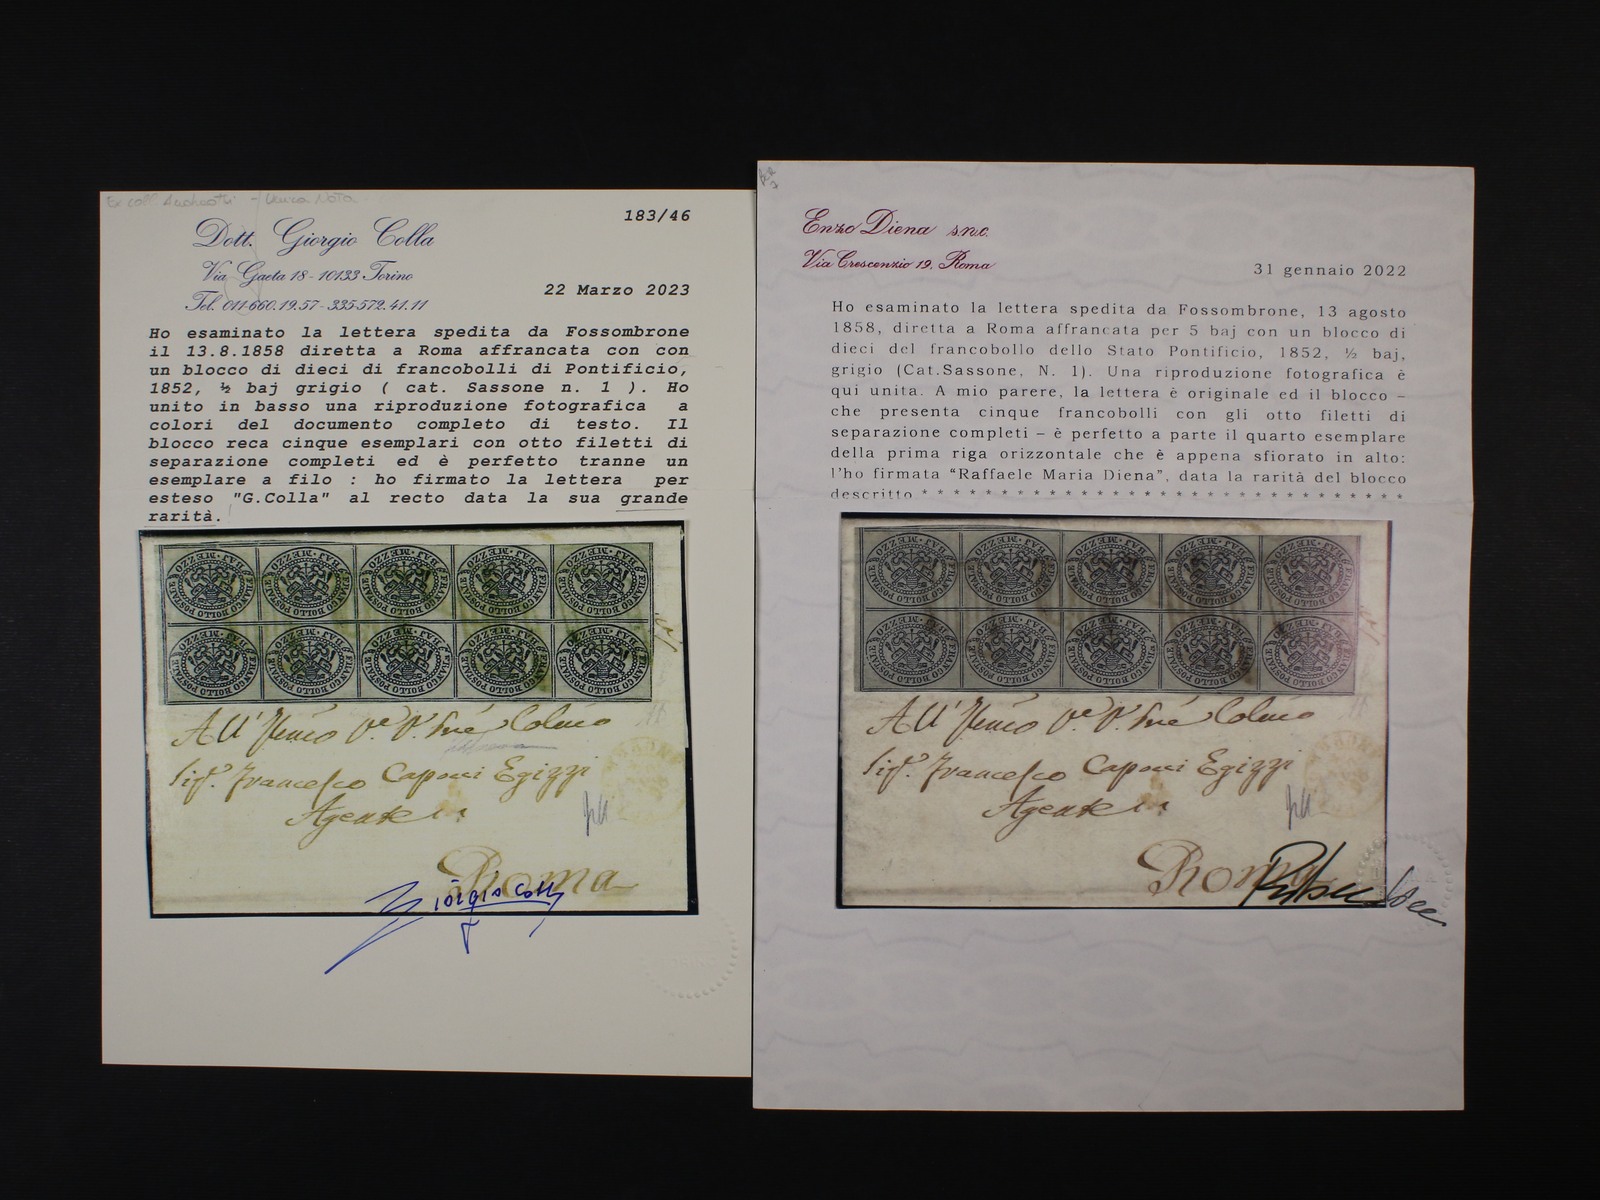 183/46
Dott. Giorgio Colla
Via Gaeta 18 - 10133 Torino
Tel. 011-660.19.57 - 335-572.41.11
22 Marzo 2023
Ho esaminato la lettera spedita da Fossombrone
il 13.8.1858 diretta a Roma affrancata con con
un blocco di dieci di francobolli di Pontificio,
1852, ½ baj grigio ( cat. Sassone n. 1 ). Ho
unito in basso una riproduzione fotografica a
colori del documento completo di testo. Il
blocco reca cinque esemplari con otto filetti di
separazione completi ed è perfetto tranne un
esemplare a filo : ho firmato la lettera per
esteso "G.Colla" al recto data la sua grande
rarità.
FRANCO BOLLO POSTALE
BAJ. MEZZO
All'
Sigr. Francesco Caponi Egizzi
Agente
Roma
Giorgio Colla
Enzo Diena s.n.c.
Via Crescenzio 19, Roma
31 gennaio 2022
Ho esaminato la lettera spedita da Fossombrone, 13 agosto
1858, diretta a Roma affrancata per 5 baj con un blocco di
dieci del francobollo dello Stato Pontificio, 1852, ½ baj,
grigio (Cat.Sassone, N. 1). Una riproduzione fotografica è
qui unita. A mio parere, la lettera è originale ed il blocco –
che presenta cinque francobolli con gli otto filetti di
separazione completi – è perfetto a parte il quarto esemplare
della prima riga orizzontale che è appena sfiorato in alto:
l'ho firmata "Raffaele Maria Diena", data la rarità del blocco
descritto * * * * * * * * * * * * * * * * * * * * * * * * * * * * * *
FRANCO BOLLO POSTALE
BAJ. MEZZO
All'
Sigr. Francesco Caponi Egizzi
Agente
Roma